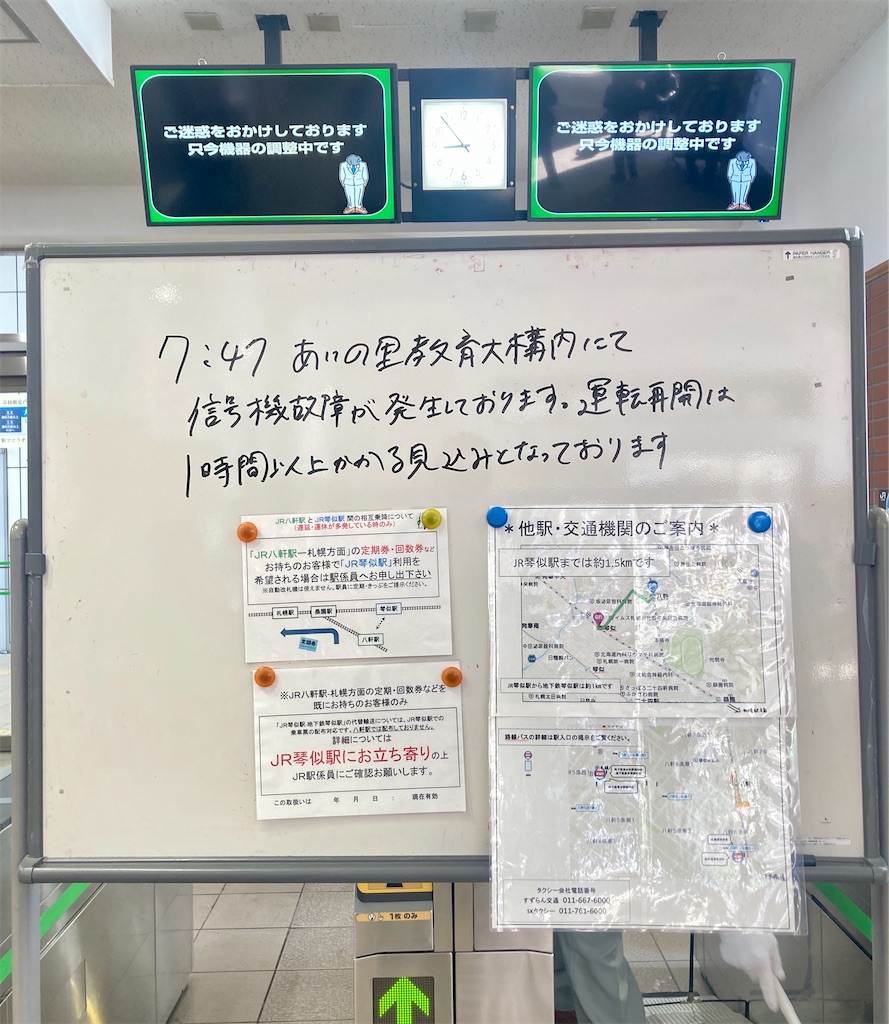 ご迷惑をおかけしております
只今機器の調整中です
12
6
ご迷惑をおかけしております
只今機器の調整中です
PAPER HANGER
7:47 あいの里教育大構内にて
信号機故障が発生しております。運転再開は
1時間以上かかる見込みとなっております
JR八軒駅とJR琴似駅 間の相互乗降について
(遅延・運休が多発している時のみ)
「JR八軒駅ー札幌方面」の定期券・回数券など
お持ちのお客様で「JR琴似駅」利用を
希望される場合は駅係員へお申し出下さい
※自動改札機は使えません。駅員に定期・きっぷをご提示ください。
札幌駅
桑園駅
琴似駅
八軒駅
※JR八軒駅-札幌方面の定期・回数券などを
既にお持ちのお客様のみ
「JR琴似駅-地下鉄琴似駅」の代替輸送については、JR琴似駅での
乗車票の配布対応です。八軒駅では配布しておりません。
詳細については
JR琴似駅にお立ち寄りの上
JR駅係員にご確認お願いします。
この取扱いは 年 月 日 : 現在有効
*他駅・交通機関のご案内*
JR琴似駅までは約1.5kmです
八軒
琴似
発寒南
日糧製パン
琴似
札幌第一病院
JR琴似駅から地下鉄琴似駅は約1kmです
路線バスの詳細は駅入口の掲示をご覧ください。
タクシー会社電話番号
すずらん交通 011-667-6000
SKタクシー 011-761-6000
1枚のみ